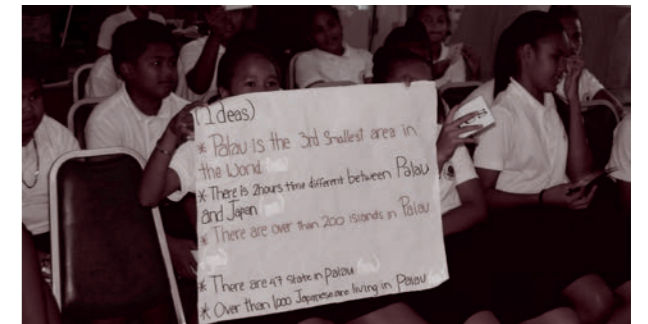 (Ideas)
* Palau is the 3rd Smallest area in
the World
* There is 2hours time different between Palau
and Japan
* There are over than 200 islands in Palau
* There are 47 State in Palau
* Over than 1,000 Japanese are living in Palau